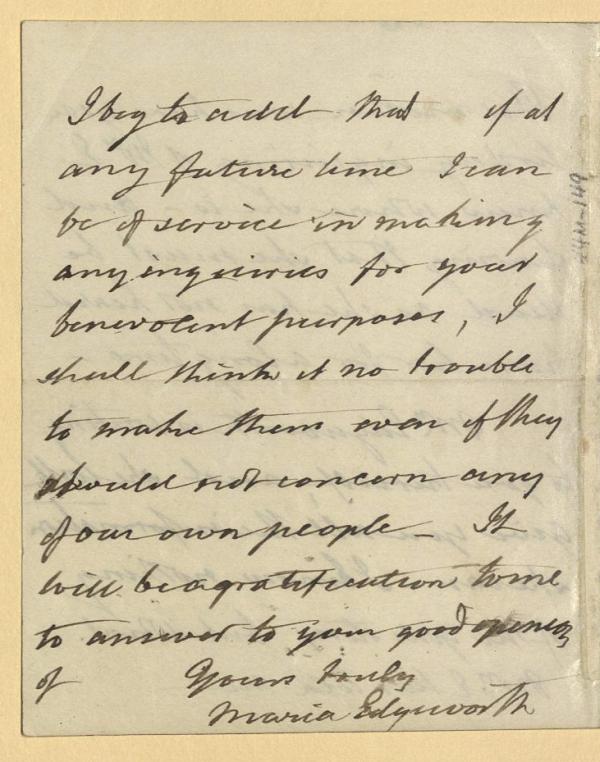 I beg to add that if at
any future time I can
be of service in making
any inquiries for your
benevolent purposes, I
shall think it no trouble
to make them even if they
should not concern any
of our own people _ It
will be a gratification to me
to answer to your good opinion
of Yours truly
Maria Edgeworth